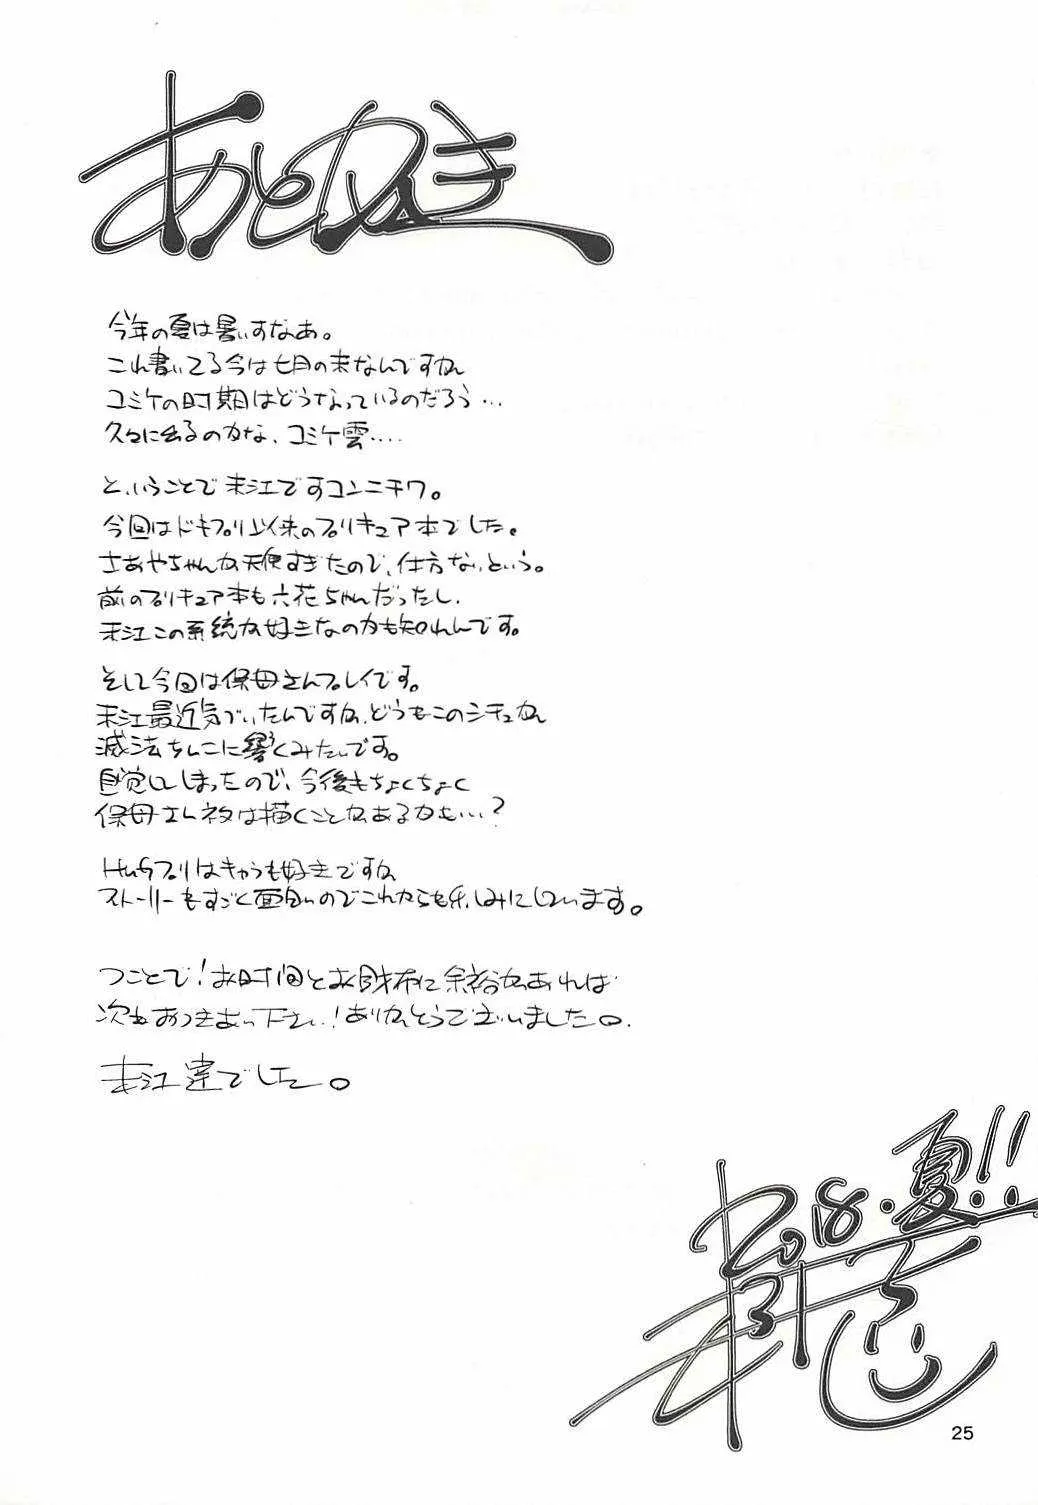 あとがき
今年の夏は暑いすなあ。
これ書いてる今は七月の末なんですがね
コミケの時期はどうなっているのだろう…
久々に出るのかな、コミケ雲‥‥
と、いうことで末江ですコンニチワ。
今回はドキプリ以来のプリキュア本でした。
さあやちゃんが天使すぎたので、仕方ないという。
前のプリキュア本も六花ちゃんだったし、
末江この系統が好きなのかも知れんです。
そして今回は保母さんプレイです。
末江最近気づいたんですが、どうもこのシチュがね
滅法ちんこに響くみたいです。
自覚してしまったので、今後もちょくちょく
保母さんネタは描くことがあるかも…?
Hugプリはキャラも好きですが
ストーリーもすごく面白いのでこれからも楽しみにしています。
つことで!お時間とお財布に余裕があれば
次もおつきあい下さい!ありがとうございました。
末江 でした。
2018・夏!!
25